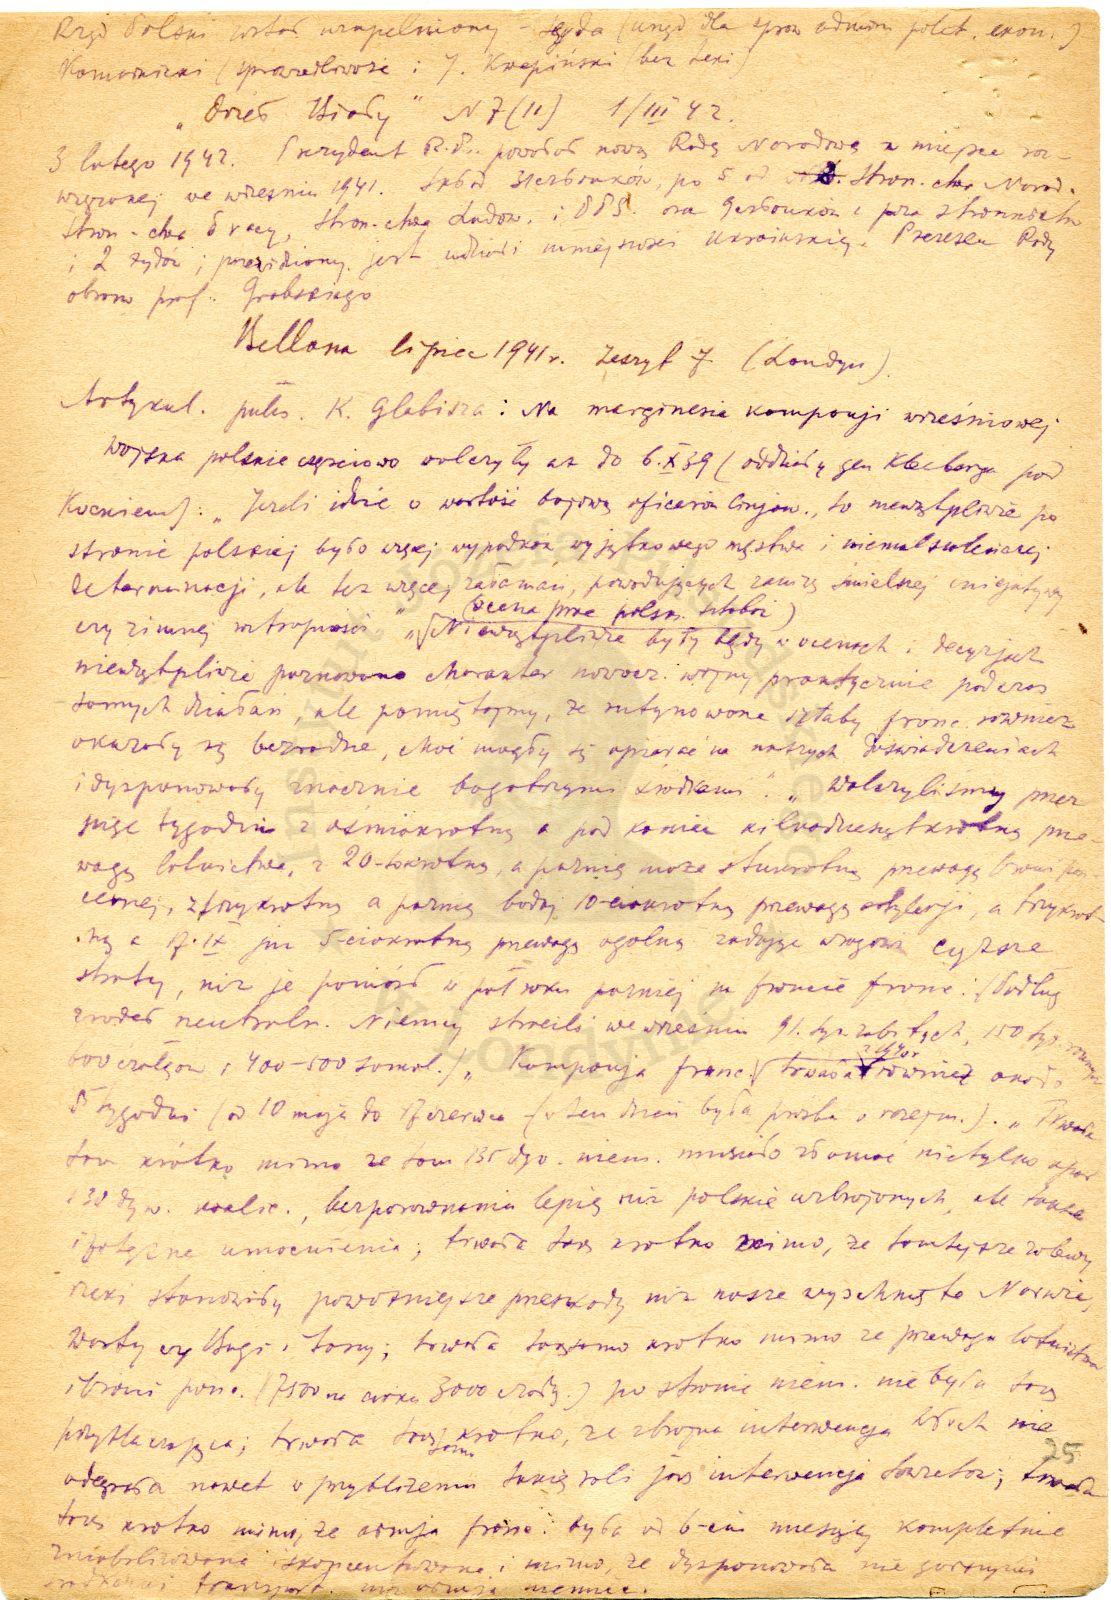 Rząd Polski został uzupełniony - Seyda (urząd dla spraw odnow. polit. ekon.)
Komarnicki (sprawiedliwość i J. Kwapiński (bez teki)
"Orzeł Biały" N 7 (11) 1/III 42.
3 lutego 1942. Prezydent R.P. powołał nową Radę Narodową w miejsce roz-
wiązanej we wrześniu 1941. Skład 31 członków, po 5 od Stron-ctwa Narod.
Stron-ctwa Pracy, Stron-ctwa Ludow. i PPS. oraz 9 członków poza stronnictw
i 2 żydów; przewidziany jest udział mniejszości Ukraińskiej. Prezesem Rady
obrano prof. Grabskiego
Bellona lipiec 1941 r. Zeszyt 7 (Londyn).
Artykuł. pułk. K. Glabisza: Na marginesie kampanji wrześniowej
Wojska polskie częściowo walczyły aż do 6.X 39 (oddziały gen Kleeberga pod
Kockiem). "Jeżeli idzie o wartość bojową oficerów linjow., to niewątpliwie po
stronie polskiej było więcej wypadków wyjątkowego męstwa i niemal szaleńczej
determinacji, ale też więcej załamań, powodujących zanik śmielszej inicjatywy
czy zimnej roztropności" (ocena prac polsk. sztabów)
"Niewątpliwie były błędy w ocenach i decyzjach
niewątpliwie poznawano charakter nowocz. wojny praktycznie podczas
samych działań, ale pamiętajmy, że rutynowane sztaby franc. również
okazały się bezradne, choć mogły się opierać na naszych doświadczeniach
i dysponowały znacznie bogatszymi środkami". "Walczyliśmy przez
pięć tygodni z ośmiokrotną a pod koniec kilkudziesiątkrotną prze-
wagą lotnictwa, z 20-tokrotną, a później może stukrotną przewagą broni pan-
cernej, z trzykrotną a później bodaj 10-ciokrotną przewagą artylerji, a trzykrot-
ną a 17.IX już 5-ciokrotną przewagą ogólną zadając wrogowi cięższe
straty, niż je poniósł w pół roku później na froncie franc. (Podług
źródeł neutraln. Niemcy stracili we wrześniu 91 tys. zabitych, 150 tys. rannych
600 czołgów i 400-500 samol.) "Kampanja franc. z 1940 r. trwała również około
5 tygodni (od 10 maja do 17 czerwca - w ten dzień była prośba o rozejm.). "Trwała
tak krótko mimo że tam 135 dyw. niem. musiało złamać nietylko opór
130 dyw. koalic., bezporównania lepiej niż polskie uzbrojonych, ale także
i potężne umocnienia; trwała tak krotko mimo, że tamtejsze zalewy
rzeki stanowiły poważniejsze przeszkody niż nasze wyschnięte Narwie,
Warty czy Bugi i Sany; trwała tak samo krotko mimo że przewaga lotnictwa
i broni panc. (7500 na około 3000 czołg.) po stronie niem. nie była tak
przytłaczająca; trwała tak samo krotko, że zbrojna interwencja Włoch nie
odegrała nawet w przybliżeniu takiej roli jak interwencja Sowietów; trwała
tak krotko mimo, że armja franc. była od 6-ciu miesięcy kompletnie
zmobilizowana i skoncentrowana i mimo, że dysponowała nie gorszymi
środkami transport. niż armja niemiec.
25